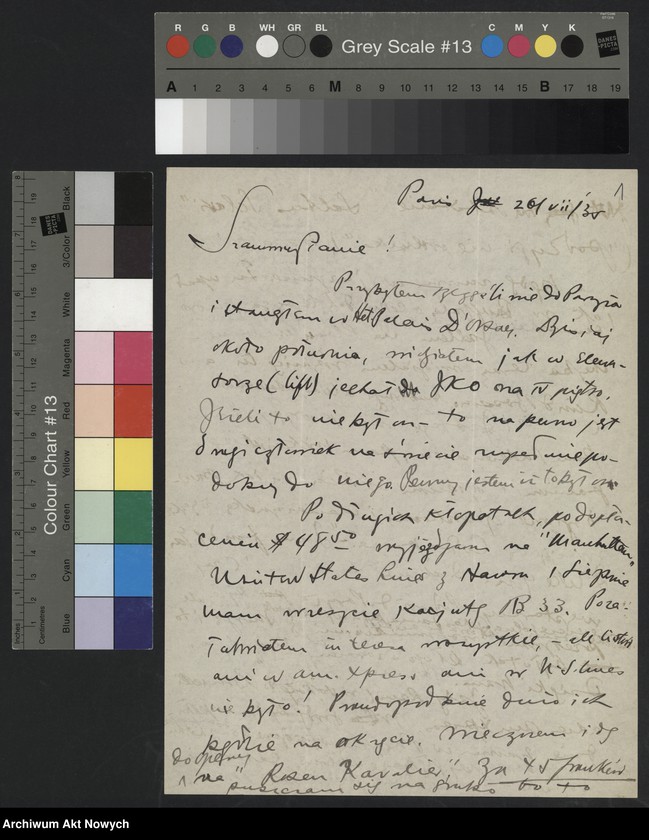 R G B WH GR BL Grey Scale #13 C M Y K
DANES PICTA
A 1 2 3 4 5 6 M 8 9 10 11 12 13 14 15 B 17 18 19
Colour Chart #13
Black
3/Color
White
Magenta
Red
Yellow
Green
Cyan
Blue
Inches
Centimetres
Paris 26/vii/35
1
Szanowny Panie!
Przybyłem do Paryża
i stanąłem w Htl Palais D'Orsay. Dziisiaj
około południa, widziałem jak w elewa-
torze (lift) jechał JKO na IV piętro.
Jeżeli to nie był on – to na pewno jest
drugi człowiek na świecie zupełnie po-
dobny do niego. Pewny jestem iż to był on.
Po długich kłopotach, po dopła-
ceniu $ 48 50 wyjeżdżam na "Manhattan"
United States Lines z Havru 1 Sierpnia
mam wreszcie kajutę B 33. Poza-
in teresa wszystkie, – ale listów
ani w am. Xpress ani w U.S. Lines
nie było! Prawdopodobnie dużo ich
będzie na okręcie. Wieczorem idę
do opery
na "Rosen Kavalier" za 45 franków
puszczam się na grubo bo to
Archiwum Akt Nowych